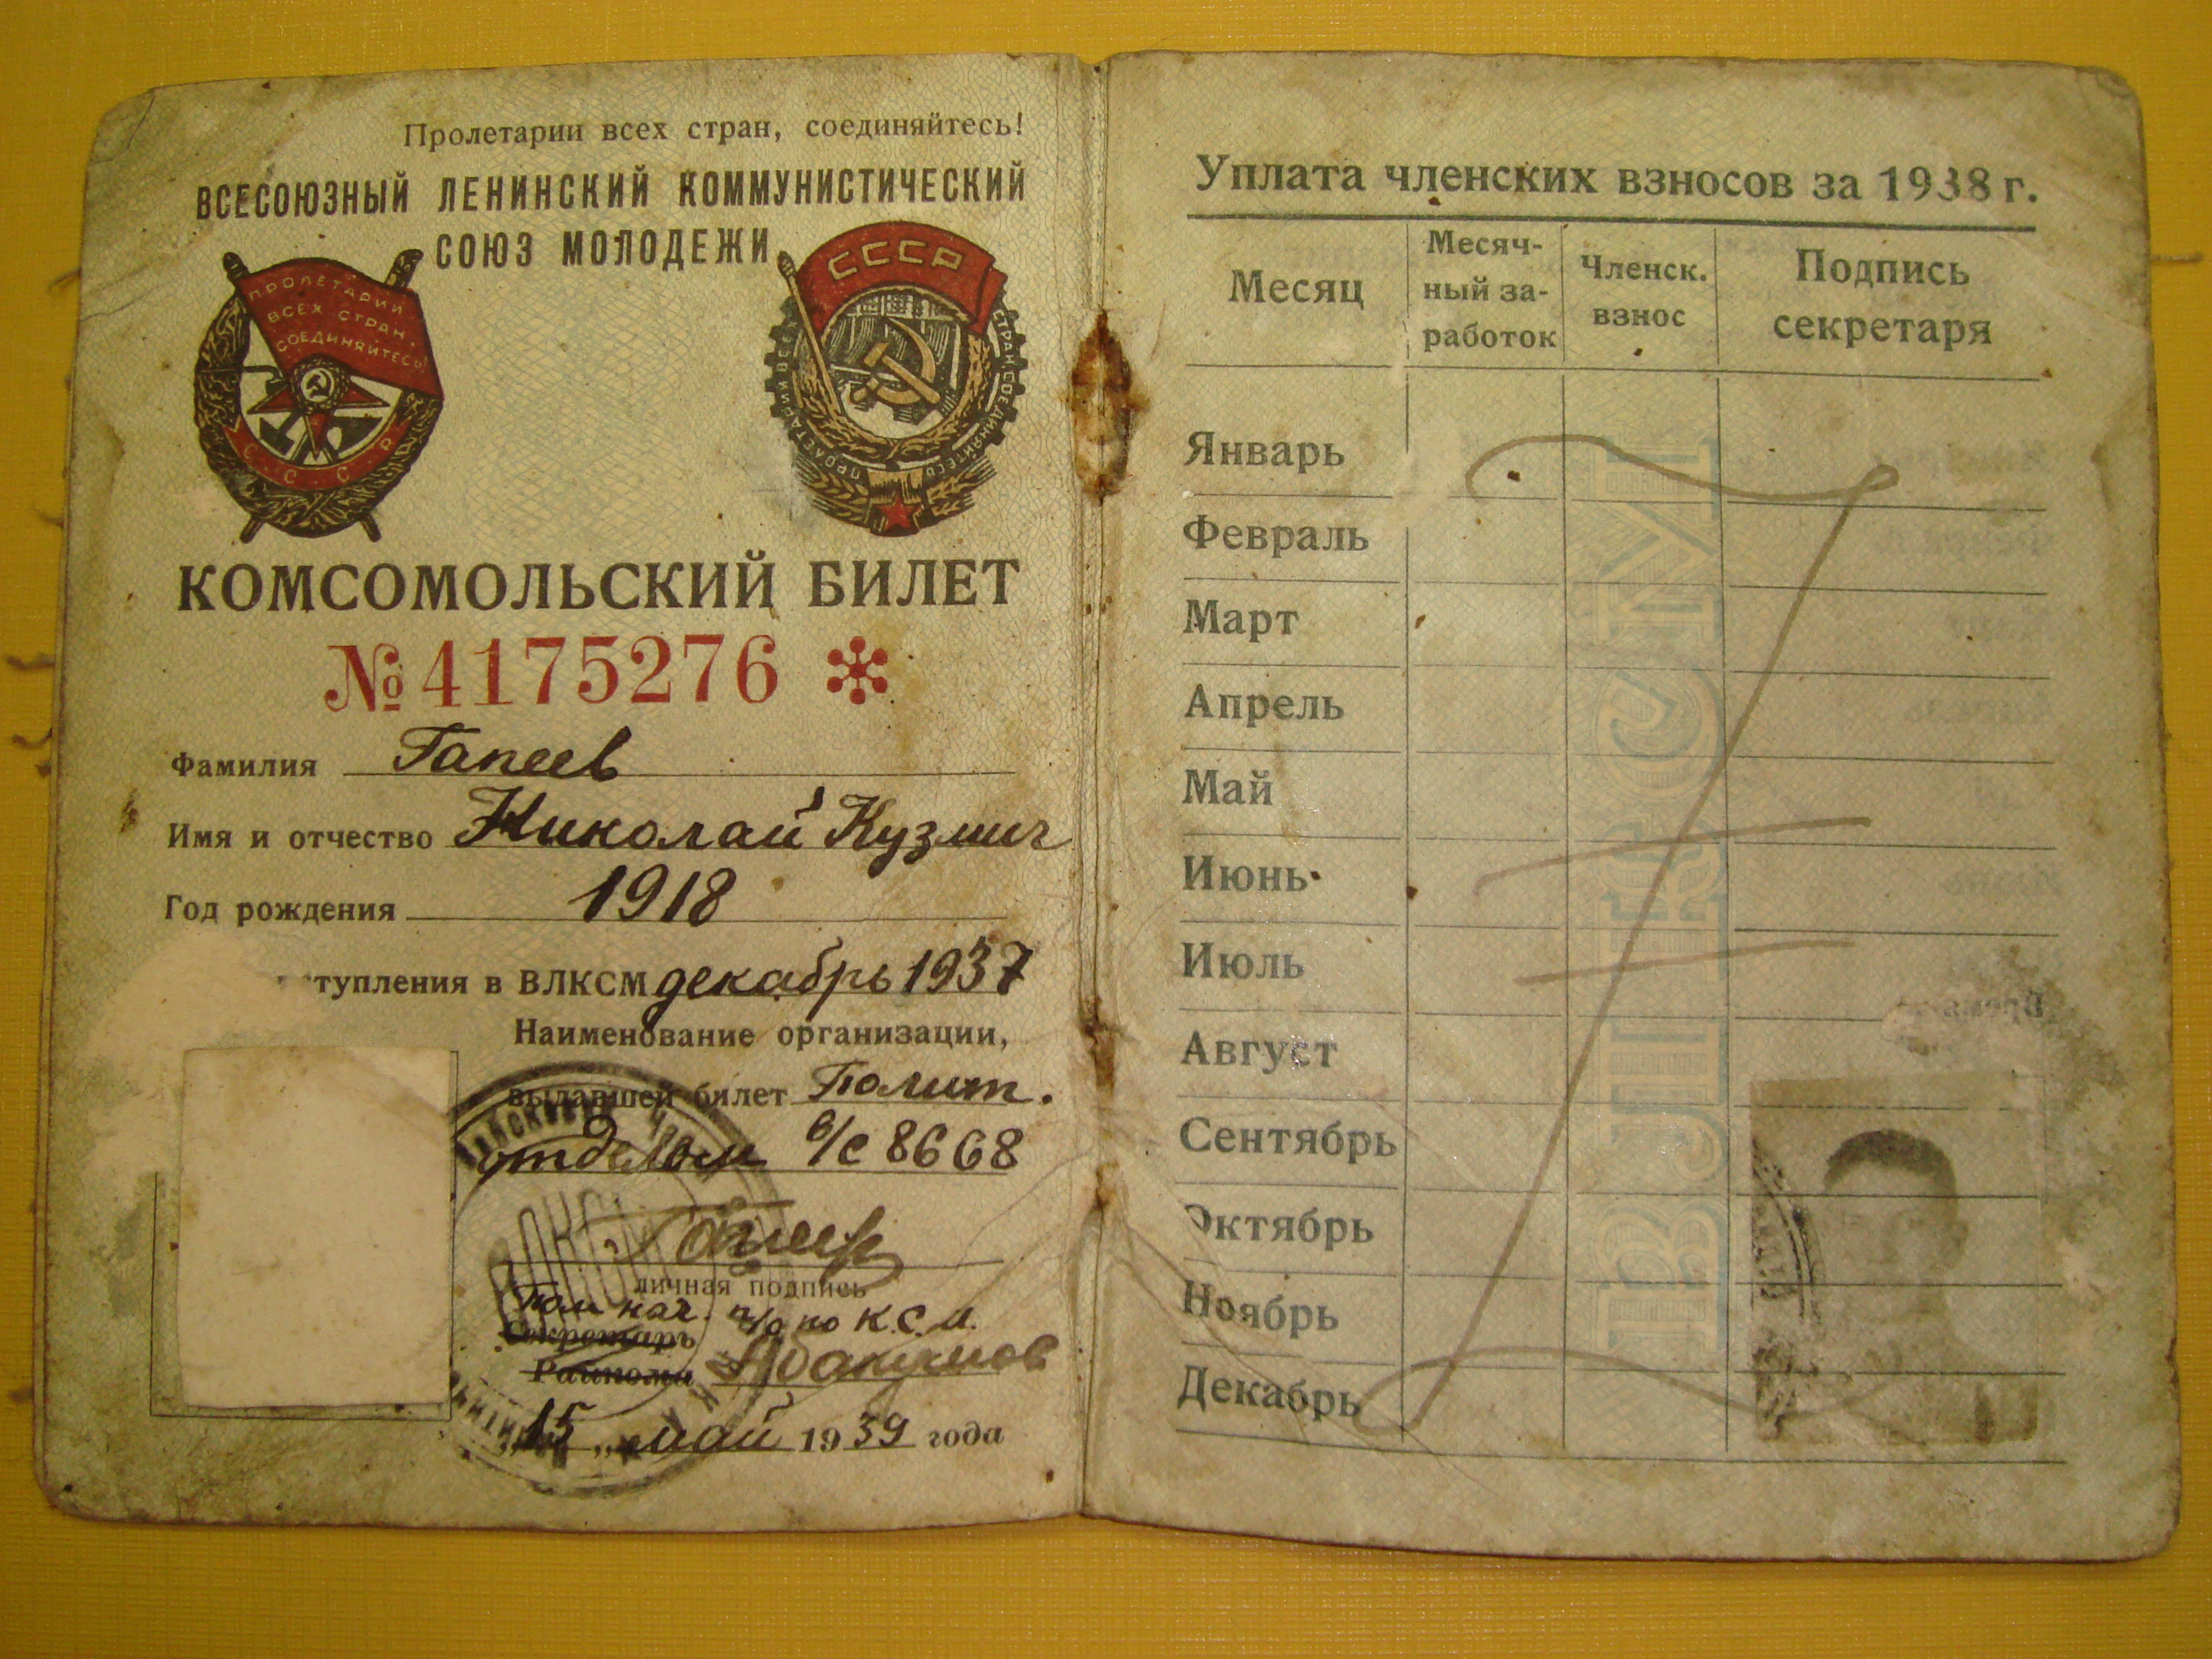 Пролетарии всех стран, соединяйтесь!
ВСЕСОЮЗНЫЙ ЛЕНИНСКИЙ КОММУНИСТИЧЕСКИЙ
СОЮЗ МОЛОДЕЖИ
ПРОЛЕТАРИИ
ВСЕХ СТРАН,
СОЕДИНЯЙТЕСЬ!
С С С Р
СССР
ПРОЛЕТАРИИ ВСЕХ СТРАН, СОЕДИНЯЙТЕСЬ
КОМСОМОЛЬСКИЙ БИЛЕТ
№ 4175276
Фамилия Гапеев
Имя и отчество Николай Кузмич
Год рождения 1918
ступления в ВЛКСМ декабрь 1937
Наименование организации,
выдавшей билет Полит.
отделом в/с 8668
Гапеев
личная подпись
Пом нач. п/о по К.С.М.
Секретарь
Райкома Абакумов
15 „ май 1939 года
Уплата членских взносов за 1938 г.
Месяц
Месяч-
ный за-
работок
Членск.
взнос
Подпись
секретаря
Январь
Февраль
Март
Апрель
Май
Июнь
Июль
Август
Сентябрь
Октябрь
Ноябрь
Декабрь
ВЛКСМ